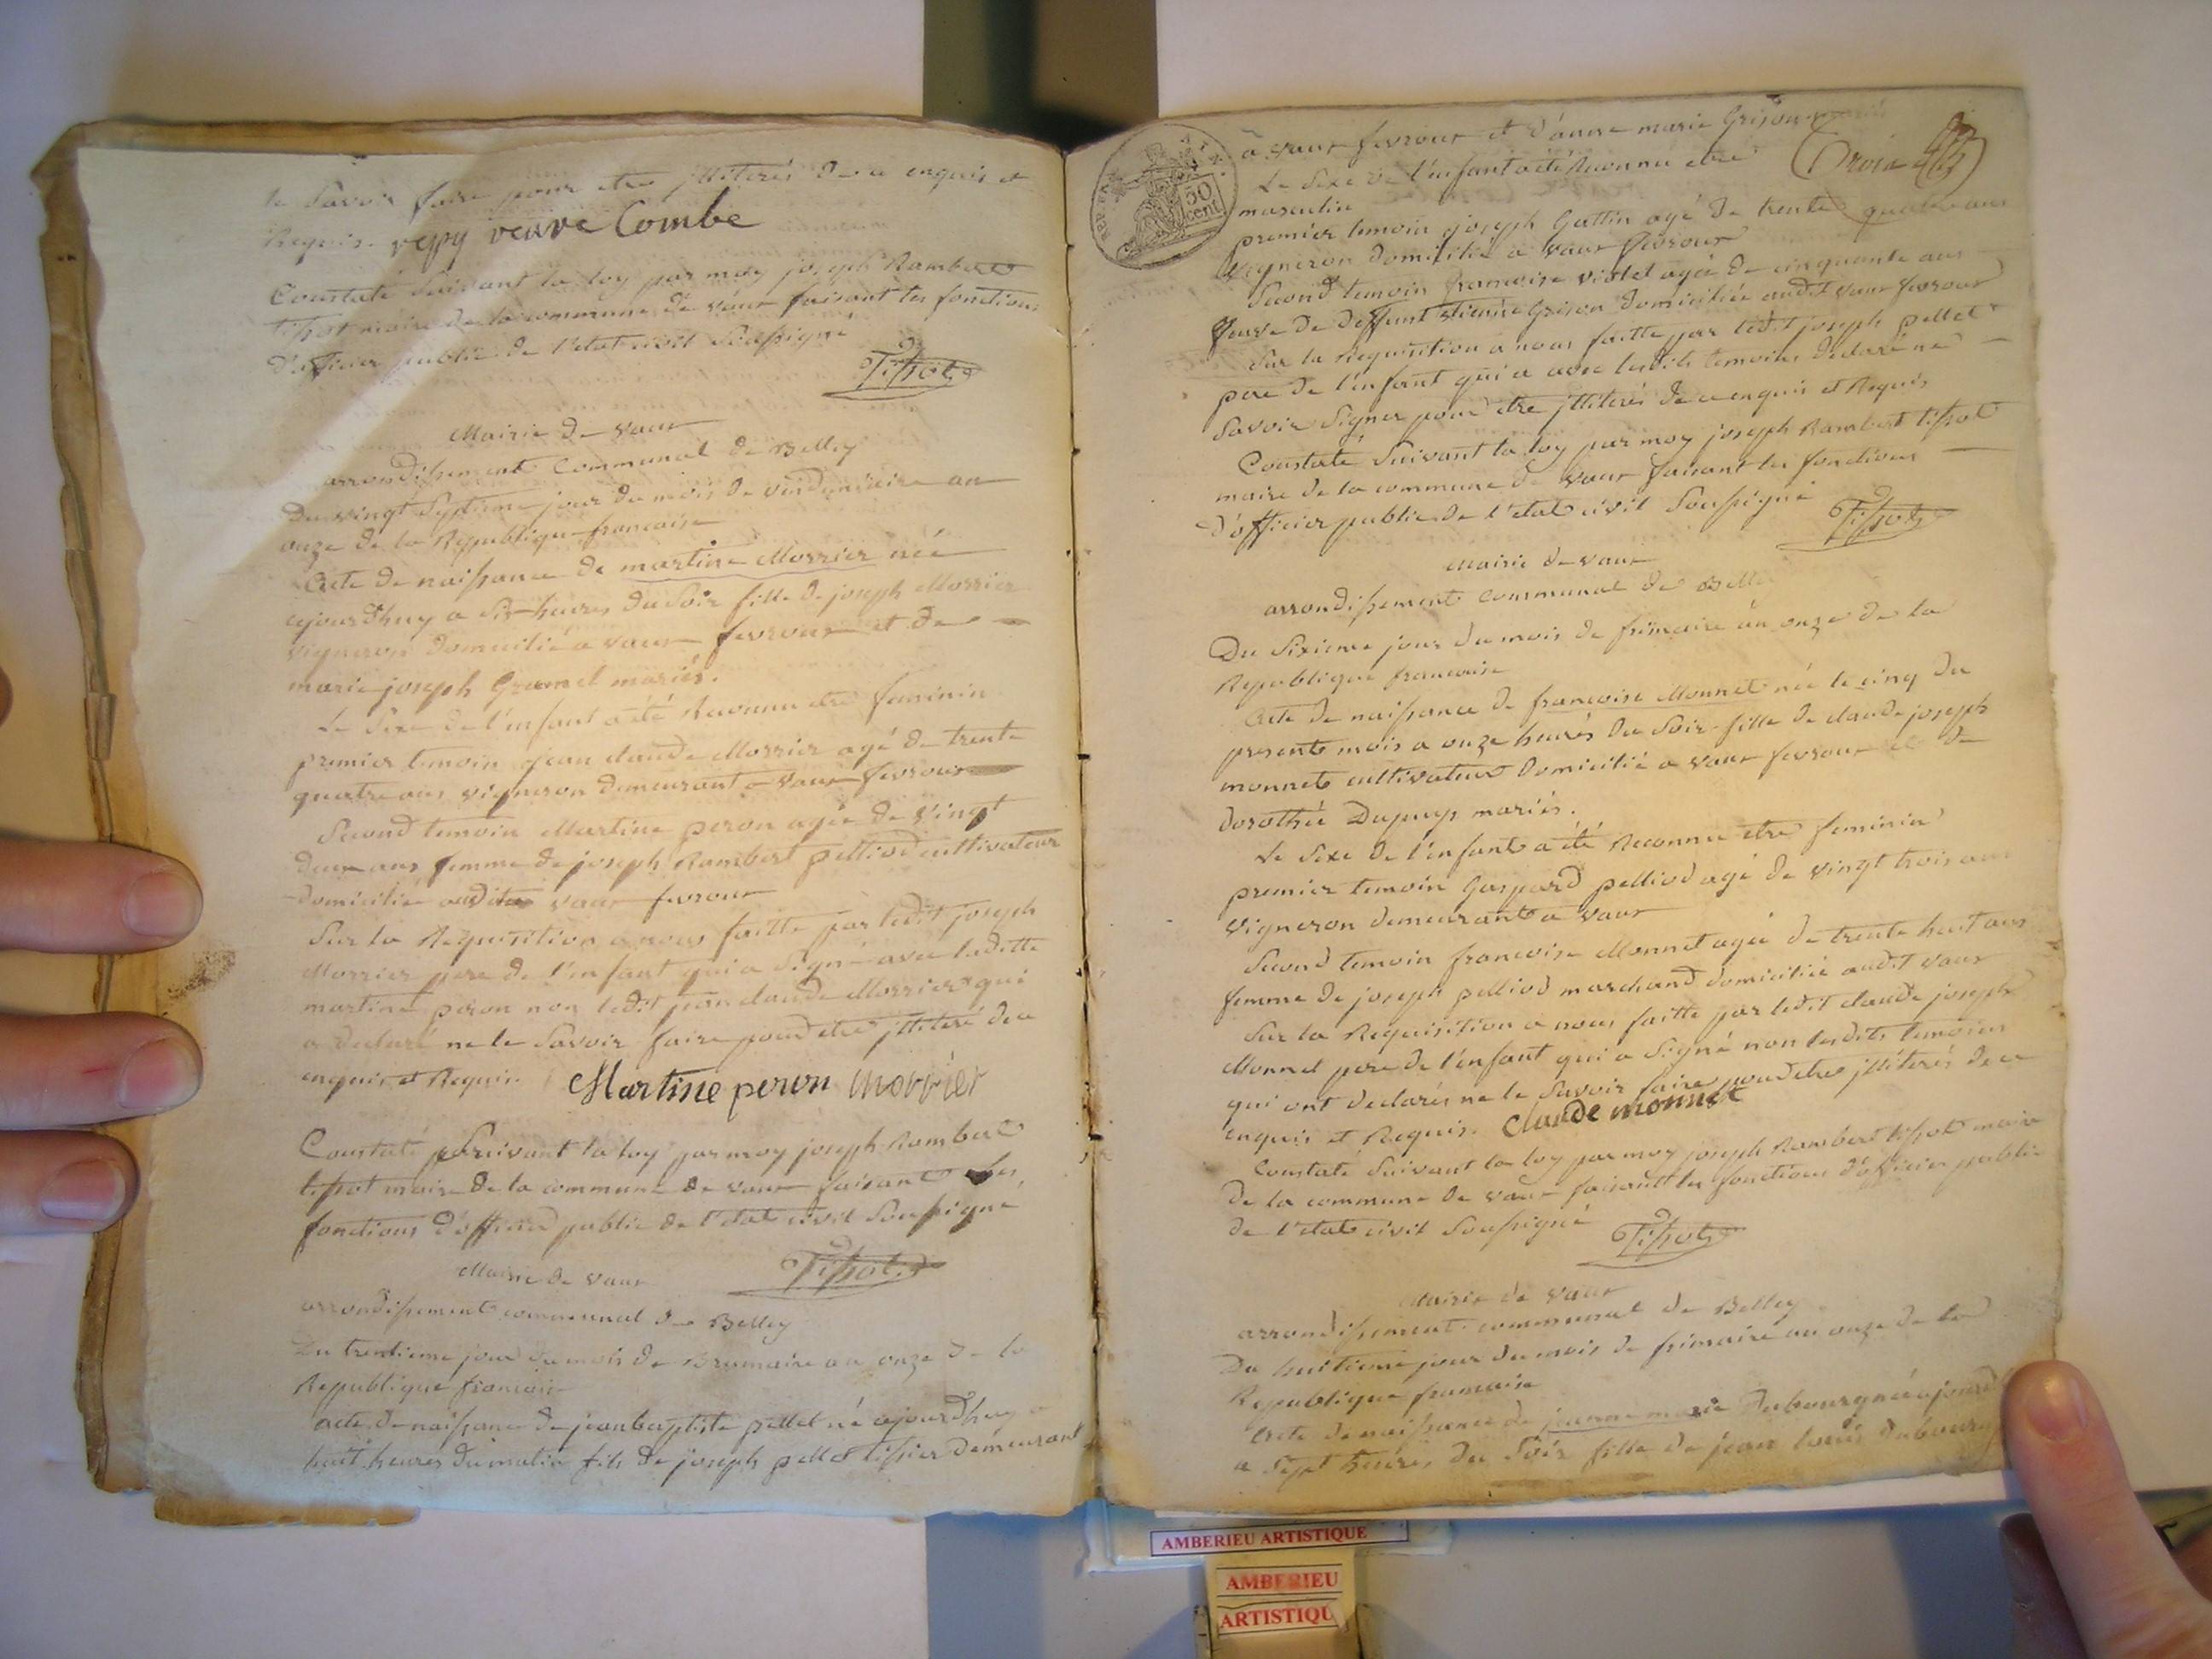 le savoir faire pour etre jlliterés de ce enquis et
Requis. vepy veuve Combe
Constaté suivant la loy par moy joseph Rambert
tissot maire de la commune de vaux faisant les fonctions
d'officier public de l'etat civil soussigné
Tissot
Mairie de vaux
arrondissement Communal de Belley
Du vingt septieme jour du mois de vendemiaire an
onze de la Republique francoise
Acte de naissance de martine Morrier née
ajourdhuy a six heures du soir fille de joseph Morrier
vigneron domicilié a vaux fevroux et de
marie joseph Gramel mariés.
Le sexe de l'enfant a été Reconnu etre feminin
premier temoin jean claude Morrier agé de trente
quatre ans vigneron demeurant a vaux fevroux
Second temoin Martine peron agée de vingt
deux ans femme de joseph Rambert pelliod cultivateur
domicilié audit vaux fevroux
Sur la Requisition a nous faitte par ledit joseph
Morrier pere de l'enfant qui a signé avec laditte
martine peron non ledit jean claude Morrier qui
a declaré ne le savoir faire pour etre jlliteré de ce
enquis et Requis.
Martine peron morrier
Constaté suivant la loy par moy joseph Rambert
tissot maire de la commune de vaux faisant les
fonctions d'officier public de l'etat civil soussigné
Tissot
Mairie de vaux
arrondissement communal de Belley
Du trentieme jour du mois de Brumaire an onze de la
Republique francoise
acte de naissance de jean baptiste pellet né ajourdhuy a
huit heures du matin fils de joseph pellet tissier demeurant
REP. FRA.
50 cent
a vaux fevroux et d'anne marie Grison mariés
Le sexe de l'enfant a été Reconnu etre
masculin
premier temoin joseph Gattin agé de trente quatre ans
vigneron domicilié a vaux fevroux
Second temoin francoise violet agée de cinquante ans
veuve de deffunt etienne Grison domiciliée audit vaux fevroux
Sur la Requisition a nous faitte par ledit joseph pellet
pere de l'enfant qui a avec lesdits temoins declaré ne
savoir signer pour etre jlliterés de ce enquis et Requis
Constaté suivant la loy par moy joseph Rambert tissot
maire de la commune de vaux faisant les fonctions
d'officier public de l'etat civil soussigné
Tissot
Mairie de vaux
arrondissement communal de Belley
Du sixieme jour du mois de frimaire an onze de la
Republique francoise
Acte de naissance de francoise Monnet née le cinq du
present mois a onze heures du soir fille de claude joseph
monnet cultivateur domicilié a vaux fevroux et de
dorothée Dupuys mariés.
Le sexe de l'enfant a été Reconnu etre feminin
premier temoin Gaspard pelliod agé de vingt trois ans
vigneron demeurant a vaux
Second temoin francoise Monnet agée de trente huit ans
femme de joseph pelliod marchand domiciliée audit vaux
Sur la Requisition a nous faitte par ledit claude joseph
Monnet pere de l'enfant qui a signé non lesdits temoins
qui ont declarés ne le savoir faire pour etre jlliterés de ce
enquis et Requis. claude monnet
Constaté suivant la loy par moy joseph Rambert tissot maire
de la commune de vaux faisant les fonctions d'officier public
de l'etat civil soussigné
Tissot
Mairie de vaux
arrondissement communal de Belley
Du huitieme jour du mois de frimaire an onze de la
Republique francoise
Acte de naissance de jeanne marie Dubourg née ajourd
a sept heures du soir fille de jean louis dubourg
AMBERIEU ARTISTIQUE
AMBERIEU
ARTISTIQU